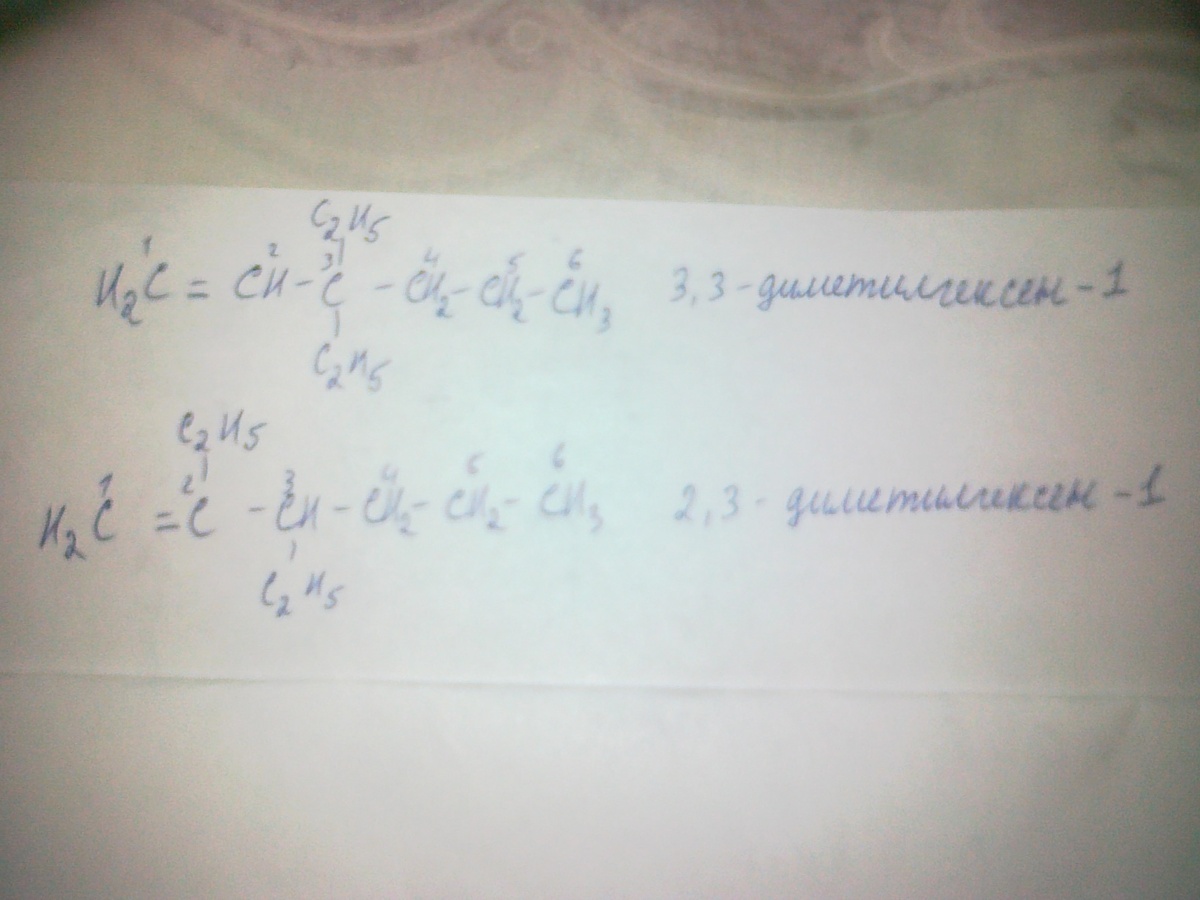 C₂H₅
H₂C¹ = CH² - C³ - CH₂⁴ - CH₂⁵ - CH₃⁶ 3,3 - диметилгексен - 1
C₂H₅
C₂H₅
H₂C¹ = C² - CH³ - CH₂⁴ - CH₂⁵ - CH₃⁶ 2,3 - диметилгексен - 1
C₂H₅